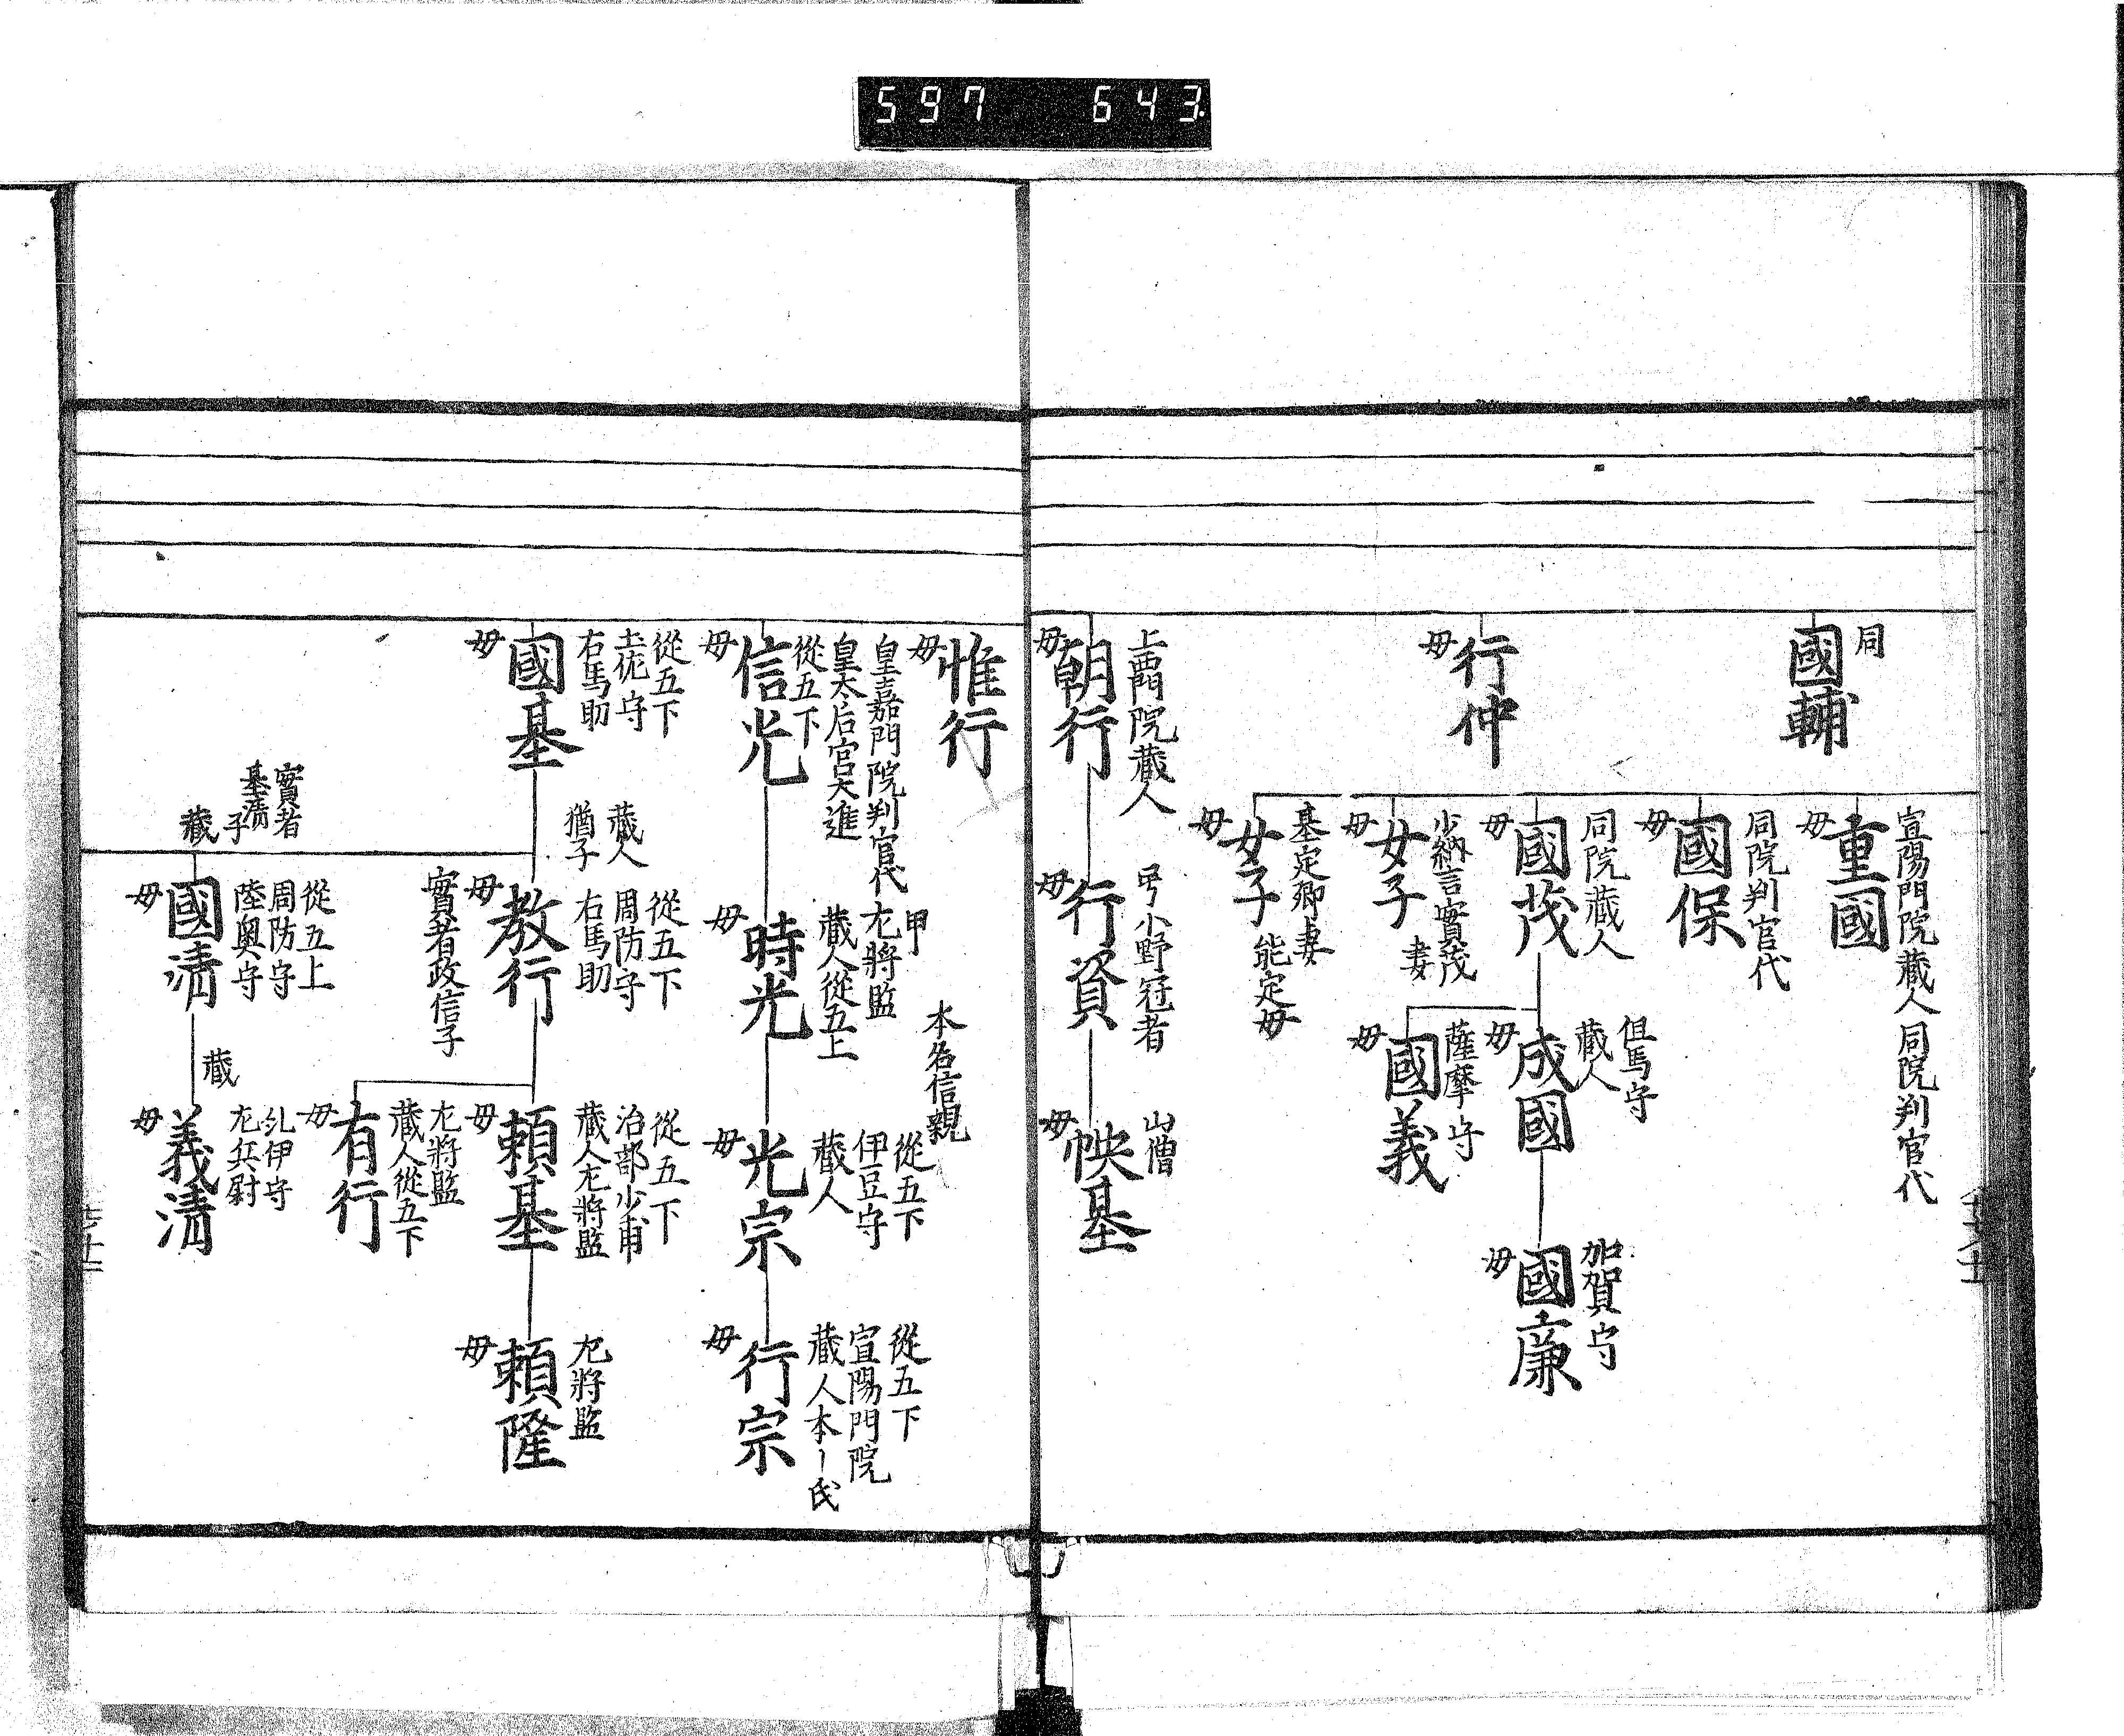 597 643
同
國輔
宣陽門院藏人同院判官代
重國
母
同院判官代
國保
母
同院藏人
國茂
母
少納言實茂
妻
女子
母
基定卿妻
能定母
女子
母
行仲
母
但馬守
藏人
成國
母
薩摩守
國義
母
加賀守
國廉
母
上西門院藏人
朝行
母
号小野冠者
行資
母
山僧
基
母
惟行
母
皇嘉門院判官代
皇太后宮大進
從五下
信光
母
甲
左將監
藏人從五上
時光
母
本名信親
從五下
伊豆守
藏人
光宗
母
從五下
宣陽門院
藏人本ー氏
行宗
母
從五下
土佐守
右馬助
國基
母
藏人
猶子
從五下
周防守
右馬助
教行
母
實者政信子
從五下
治部少甫
藏人左將監
頼基
母
左將監
頼隆
母
左將監
藏人從五下
有行
母
實者
基清
子
藏
從五上
周防守
陸奥守
國清
母
藏
紀伊守
左兵尉
義清
母